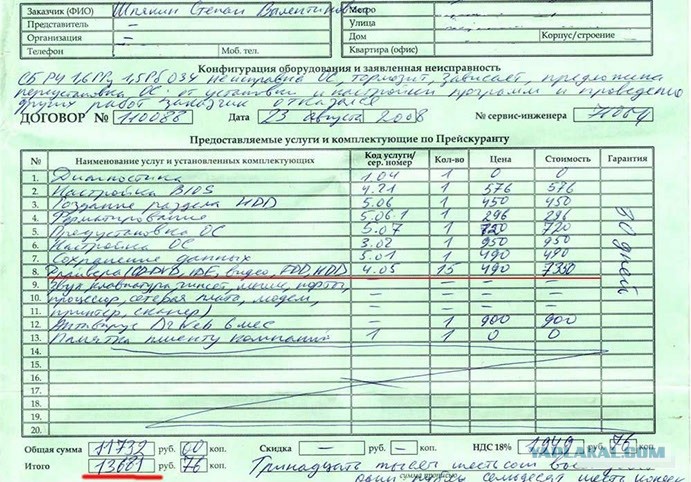 Заказчик (ФИО) Шпякин Степан Валентинович Метро
Представитель — Улица
Организация — Дом Корпус/строение
Телефон Моб. тел. Квартира (офис)
Конфигурация оборудования и заявленная неисправность
неисправна ОС, тормозит, зависает, предложена
переустановка ОС. от установки и настройки программ и проведения
других работ заказчик отказался
ДОГОВОР № 110088 Дата 23 августа 2008 № сервис-инженера
Предоставляемые услуги и комплектующие по Прейскуранту
№ Наименование услуг и установленных комплектующих Код услуги/ сер. номер Кол-во Цена Стоимость Гарантия
1. Диагностика 1.04 1 0 0
2. Настройка BIOS 4.21 1 576 576
3. Создание раздела HDD 5.06 1 450 450
4. Форматирование 5.06.1 1 296 296
5. Предустановка ОС 5.07 1 720 720
6. Настройка ОС 3.02 1 950 950
7. Сохранение данных 5.01 1 490 490
30 дней
8. Драйвера (CD-DVD, IDE, видео, FDD, HDD 4.05 15 490 7350
9. Звук, клавиатура, чипсет, мышь, порты, — — — —
10. процессор, сетевая плата, модем, — — — —
11. принтер, сканер) — — — —
12. Антивирус DrWeb 6 мес 1 900 900
13. Памятка клиенту компании 1 1 0 0
14.
15.
16.
17.
18.
19.
20.
Общая сумма 11732 руб. 00 коп. Скидка — руб. — коп. НДС 18% 1949 руб. 76 коп.
Итого 13681 руб. 76 коп. Тринадцать тысяч шестьсот
сумма прописью
семьдесят шесть копеек
YAPLAKAL.COM